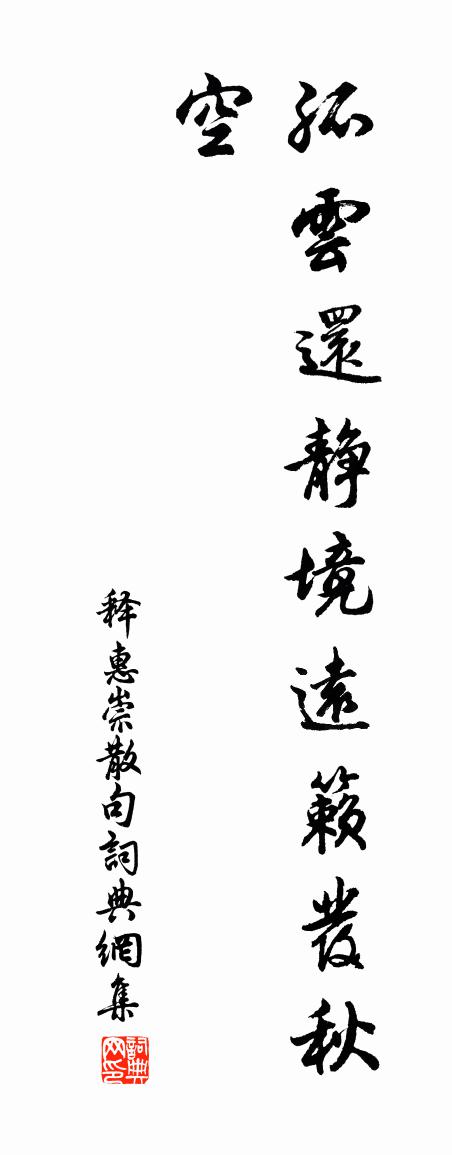 孤雲還静境遠籟發秋
空
释惠崇散句詞典網集
詞典
网印